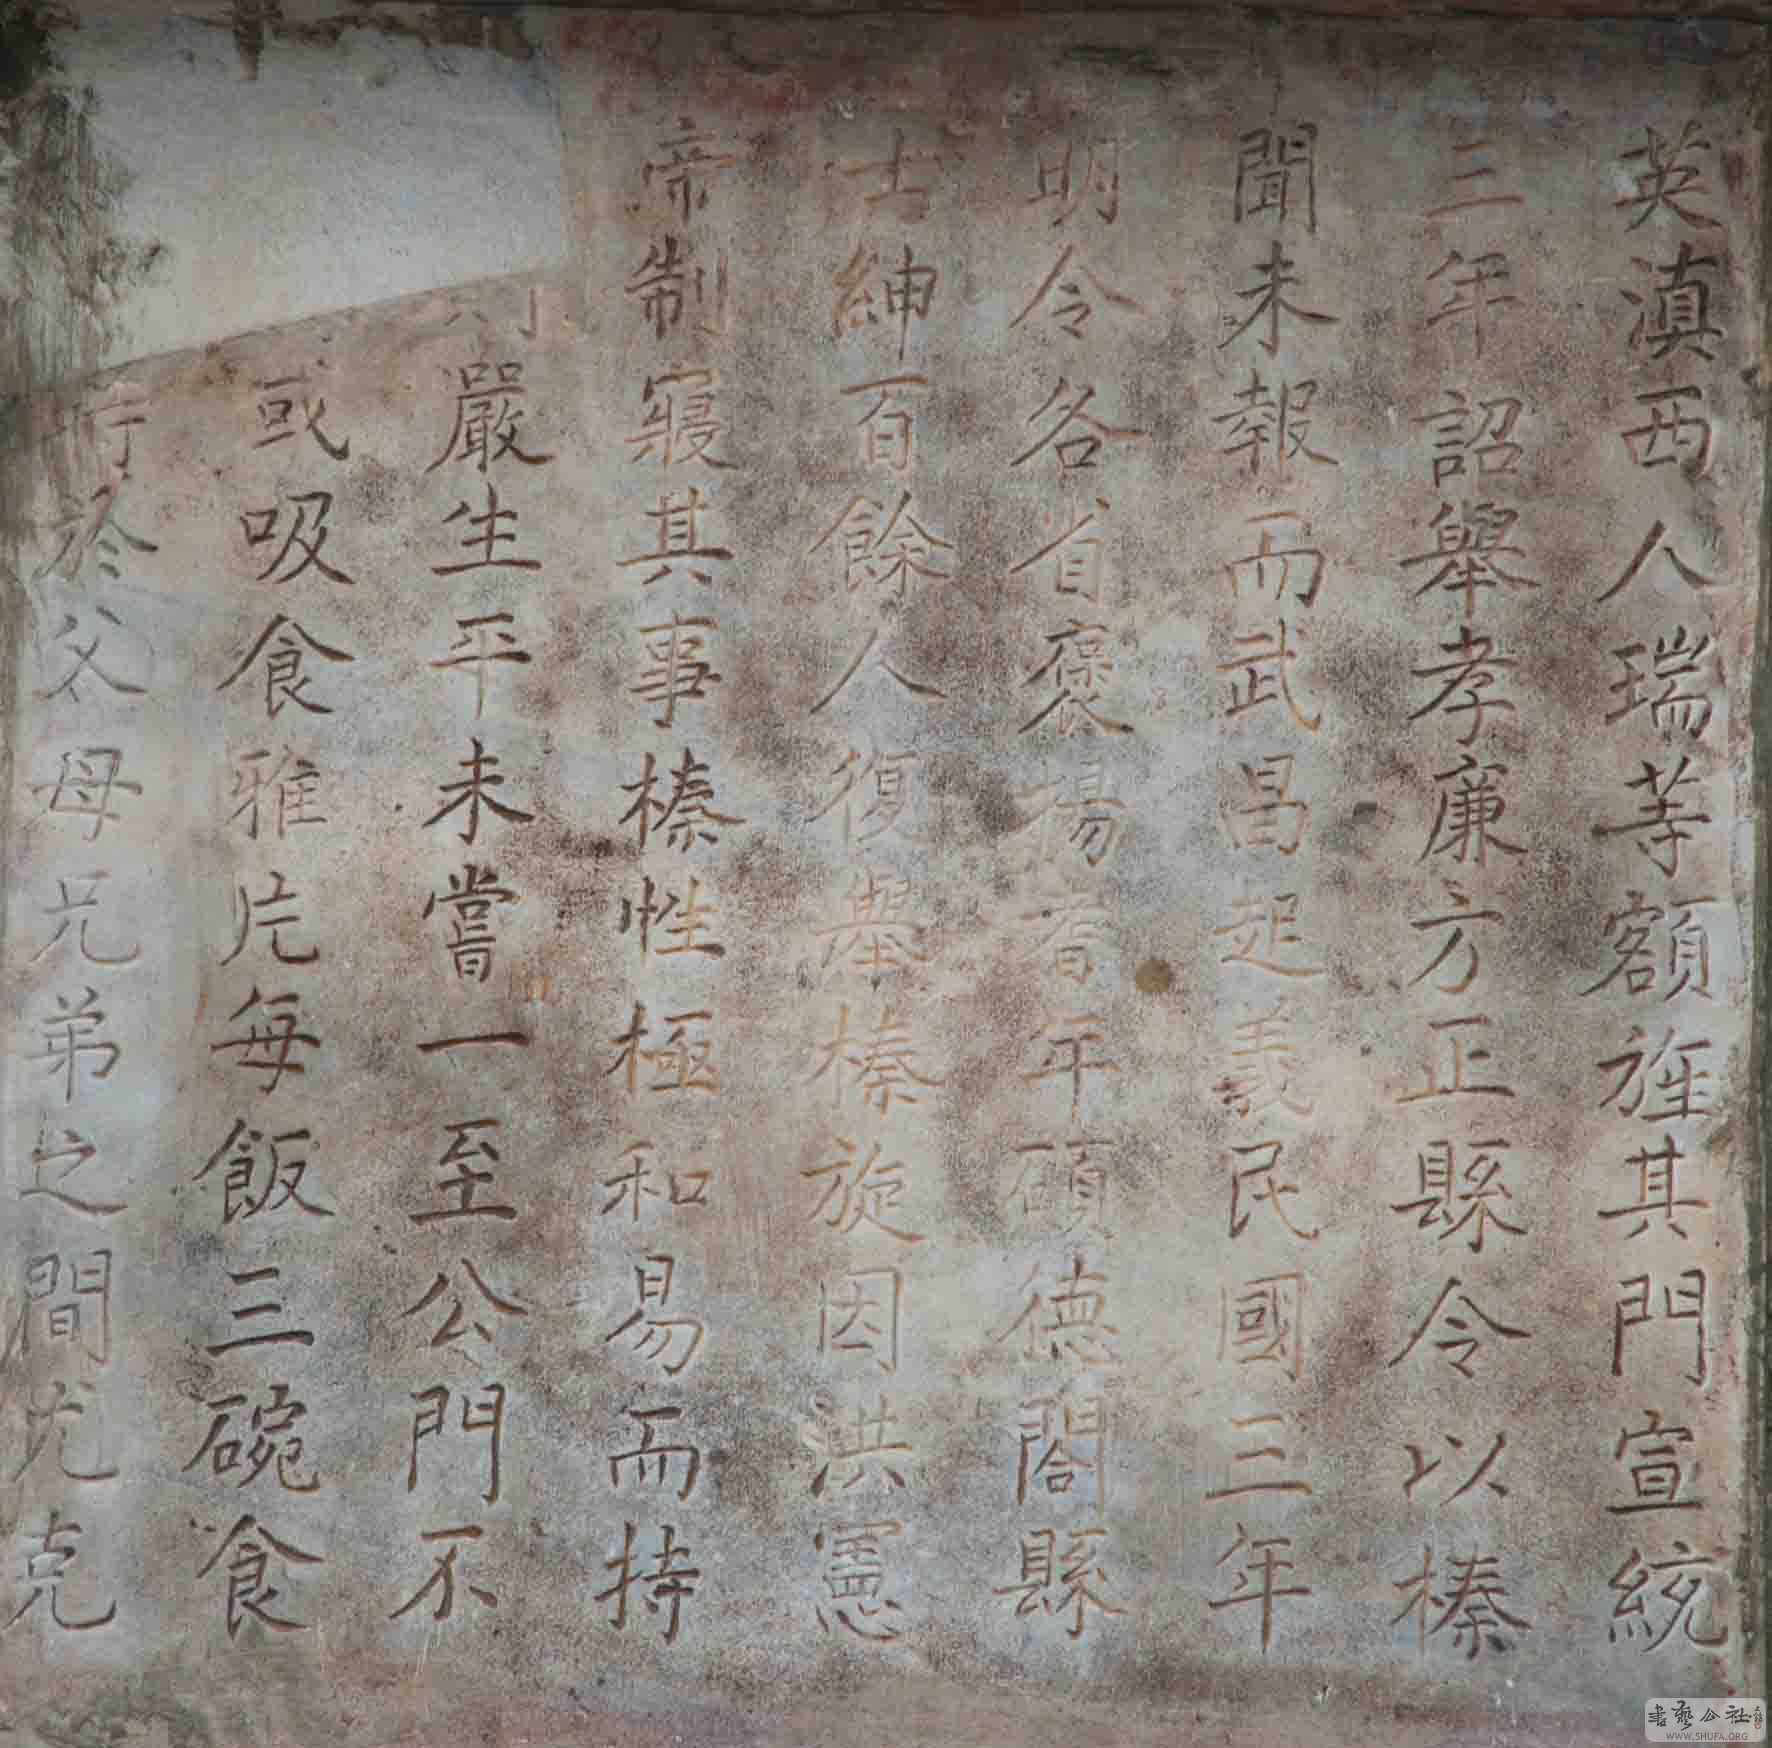 英滇西人瑞等額旌其門宣統
三年詔舉孝廉方正縣令以榛
聞未報而武昌起義民國三年
明令各省褒揚耆年碩德閤縣
士紳百餘人復舉榛旋因洪憲
帝制寢其事榛性極和易而持
則嚴生平未嘗一至公門不
或吸食雅片每飯三碗食
於父母兄弟之間尤克
書藝公社
WWW.SHUFA.ORG